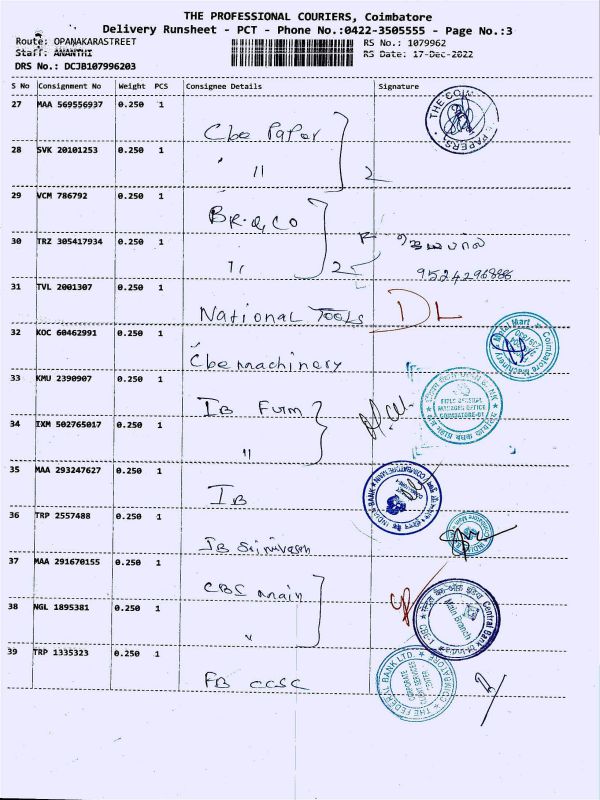 THE PROFESSIONAL COURIERS, Coimbatore
Delivery Runsheet - PCT - Phone No.:0422-3505555 - Page No.:3
Route: OPANAKARASTREET
RS No.: 1079962
Staff: ANANTHI
RS Date: 17-Dec-2022
DRS No.: DCJB107996203
S No Consignment No Weight PCS Consignee Details Signature
27 MAA 569556937 0.250 1 Cbe Paper
28 SVK 20101253 0.250 1 " 2
29 VCM 786792 0.250 1 BR & CO
30 TRZ 305417934 0.250 1 " 2
9524296888
31 TVL 2001307 0.250 1 National Tools DL
32 KOC 60462991 0.250 1 Cbe Machinery
33 KMU 2390907 0.250 1 IB Furm
34 IXM 502765017 0.250 1 "
35 MAA 293247627 0.250 1 IB
36 TRP 2557488 0.250 1 IB Srinivasan
37 MAA 291670155 0.250 1 CBS main
38 NGL 1895381 0.250 1 "
39 TRP 1335323 0.250 1 FB CCSC
THE PAPERS
Coimbatore Machinery & Metal Mart
MANAGERS OFFICE
COIMBATORE-01
INDIAN BANK
Central Bank of India
Main Branch
CBE-1
THE FEDERAL BANK LTD.
COIMBATORE